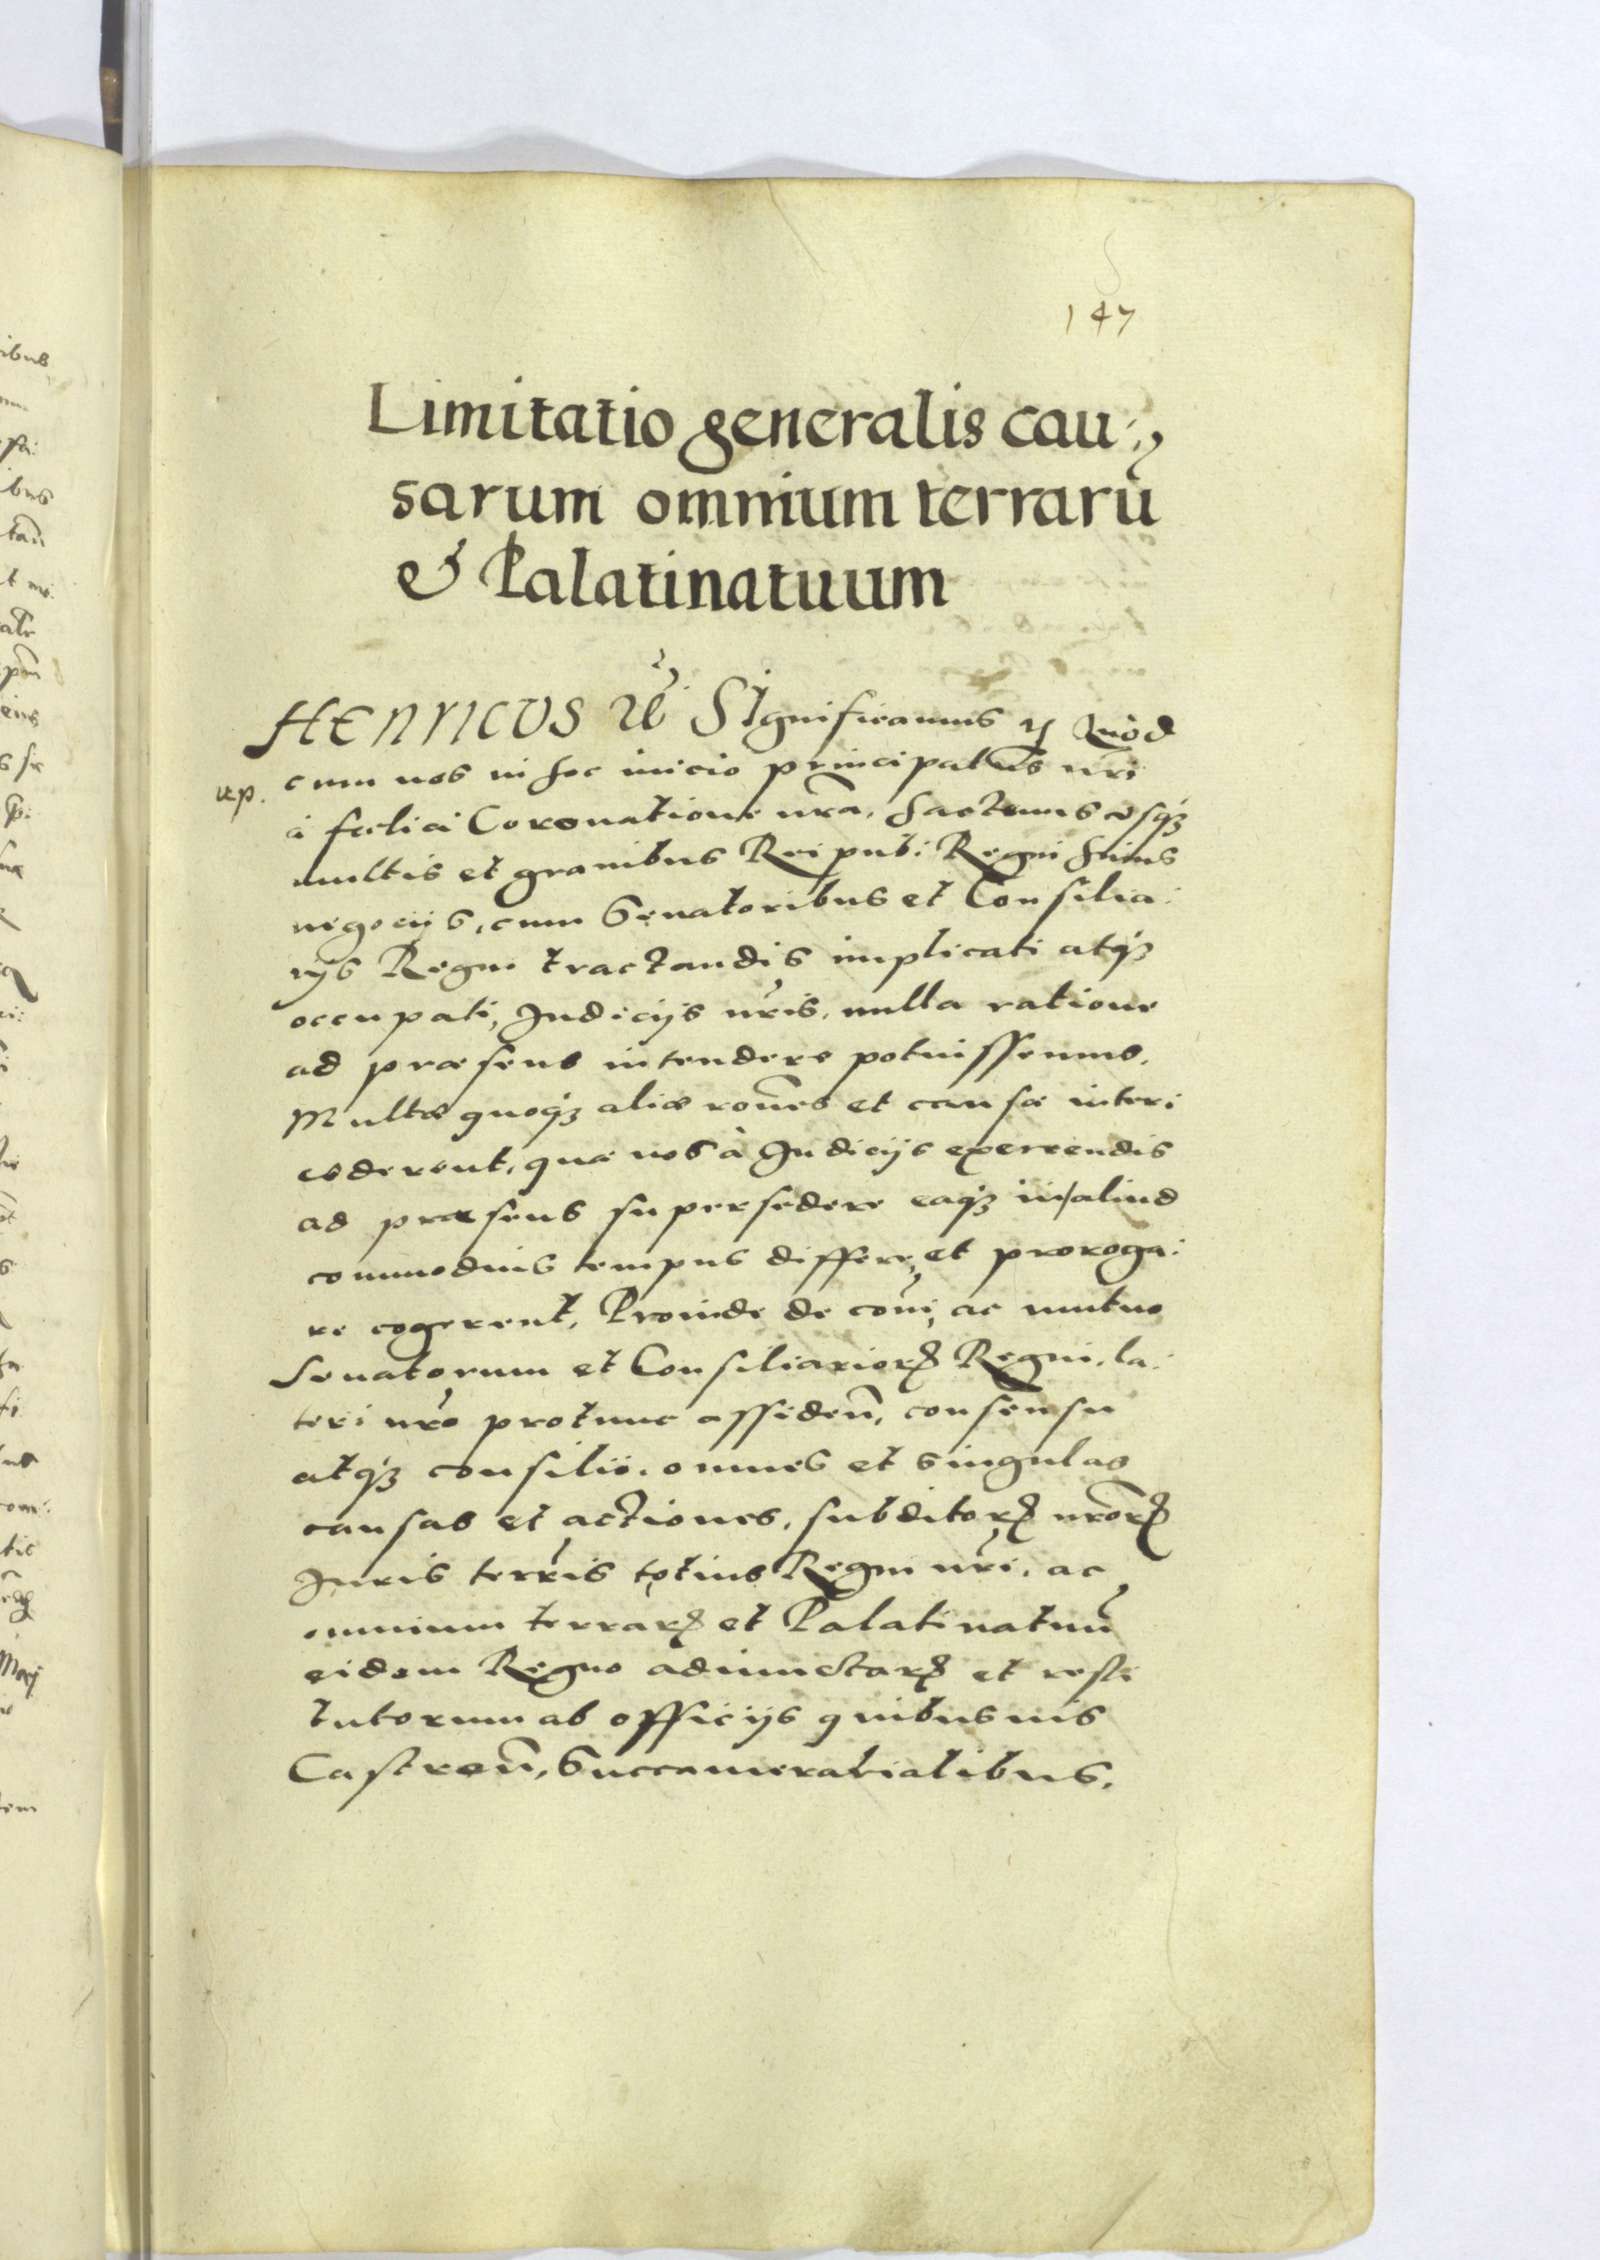 147
Limitatio generalis cau
sarum omnium terrarū
& Palatinatuum
HENRICUS SIgnificamus Quòd
cum nos in hoc inicio principatus nri
à fœlici Coronatione nra, hactenus usq3
multis et grauibus Reipub: Regni huius
negocijs, cum Senatoribus et Consilia:
rijs Regni tractandis implicati atq3
occupati, Iudicijs nris, nulla ratione
ad præsens intendere potuissemus.
Multæ quoq3 aliæ rones et causæ interi
cederent, quæ nos à Iudicijs exercendis
ad præsens supersedere eaq3 in aliud
commodius tempus differre, et proroga:
re cogerent, Proinde de coni, ac mutuo
Senatorum et Consiliarioꝝ Regni, la:
teri nro protunc assiden, consensu
atq3 consilio, omnes et singulas
causas et actiones, subditoꝝ nroꝝ
Iuris terris totius Regni nri, ac
omnium terraꝝ et Palatinatuū
eidem Regno adiunctaꝝ et resti
tutorum ab officijs quibusuis
Castren, Succameratialibus,